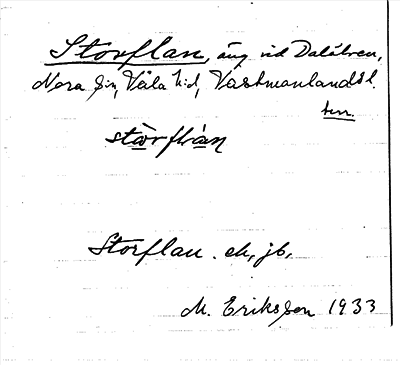 Storflan, äng vid Dalälven,
Nora sn, Våla hd, Västmanlands l.
ten.
stòrflàn
Storflan. ek, jb,
M. Eriksson 1933